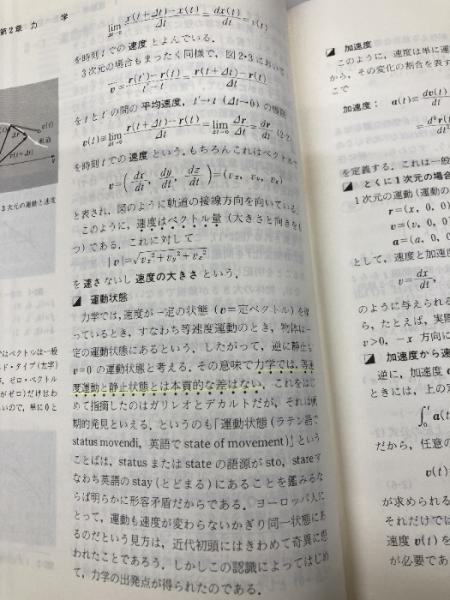 第2章 力 学
lim Δt→0 x(t+Δt)−x(t)/Δt = dx(t)/dt = v(t)
を時刻 t での速度とよんでいる.
3次元の場合もまったく同様で, 図2·3において
v̄ = r(t′)−r(t)/t′−t = r(t+Δt)−r(t)/Δt
を t と t′ の間の平均速度, t′→t (Δt→0) の極限
v(t)≡lim Δt→0 r(t+Δt)−r(t)/Δt = lim Δt→0 Δr/Δt = dr/dt
を時刻 t での速度という. もちろんこれはベクトルで
v=(dx/dt, dy/dt, dz/dt)=(vx, vy, vz)
と表され, 図のように軌道の接線方向を向いている.
このように, 速度はベクトル量 (大きさと向きをも
つ) である. これに対して
|v|=√vx²+vy²+vz²
を速さないし速度の大きさという.
運動状態
力学では, 速度が一定の状態 (v=定ベクトル) を保
っているとき, すなわち等速度運動のとき, 物体は一
定の運動状態にあるという. したがって, 逆に静止も
v=0 の運動状態と考える. その意味で力学では, 等速
度運動と静止状態とは本質的な差はない. これをはじ
めて指摘したのはガリレオとデカルトだが, それは画
期的発見といえる. というのも「運動状態 (ラテン語で
status movendi, 英語で state of movement)」という
ことばは, status または state の語源が sto, stare す
なわち英語の stay (とどまる) にあることを鑑みるな
らば明らかに形容矛盾だからである. ヨーロッパ人に
とって, 運動も速度が変わらないかぎり同一状態にあ
るのだという見方は, 近代初頭にはきわめて奇異に思
われたことであろう. しかしこの認識によってはじめ
て, 力学の出発点が得られたのである.
v(t)
Δr
r(t+Δt)
軌道
3次元の運動と速度
はベクトルは一般
ルド・タイプ (太字)
ゼロ・ベクトル
がゼロ) だけはわ
いので, 単に0と
加速度
このように, 速度は単に運
から, その変化の割合を表す
こで
加速度: a(t)=dv(t)/dt
=d²r(t)
を定義する. これは一般
とくに1次元の場合
1次元の運動 (運動の
r=(x, 0, 0
v=(v, 0, 0
a=(a, 0, 0
として, 速度と加速度
v=dx/dt,
のように与えられる
ら, たとえば, 実際
v>0, −x 方向に
加速度から速
逆に, 加速度
ときには, 上の定
∫₀ᵗ a(t
だから, 任意の
v(t)
が求められる
それだけでは
速度 v(t) を
が必要であ